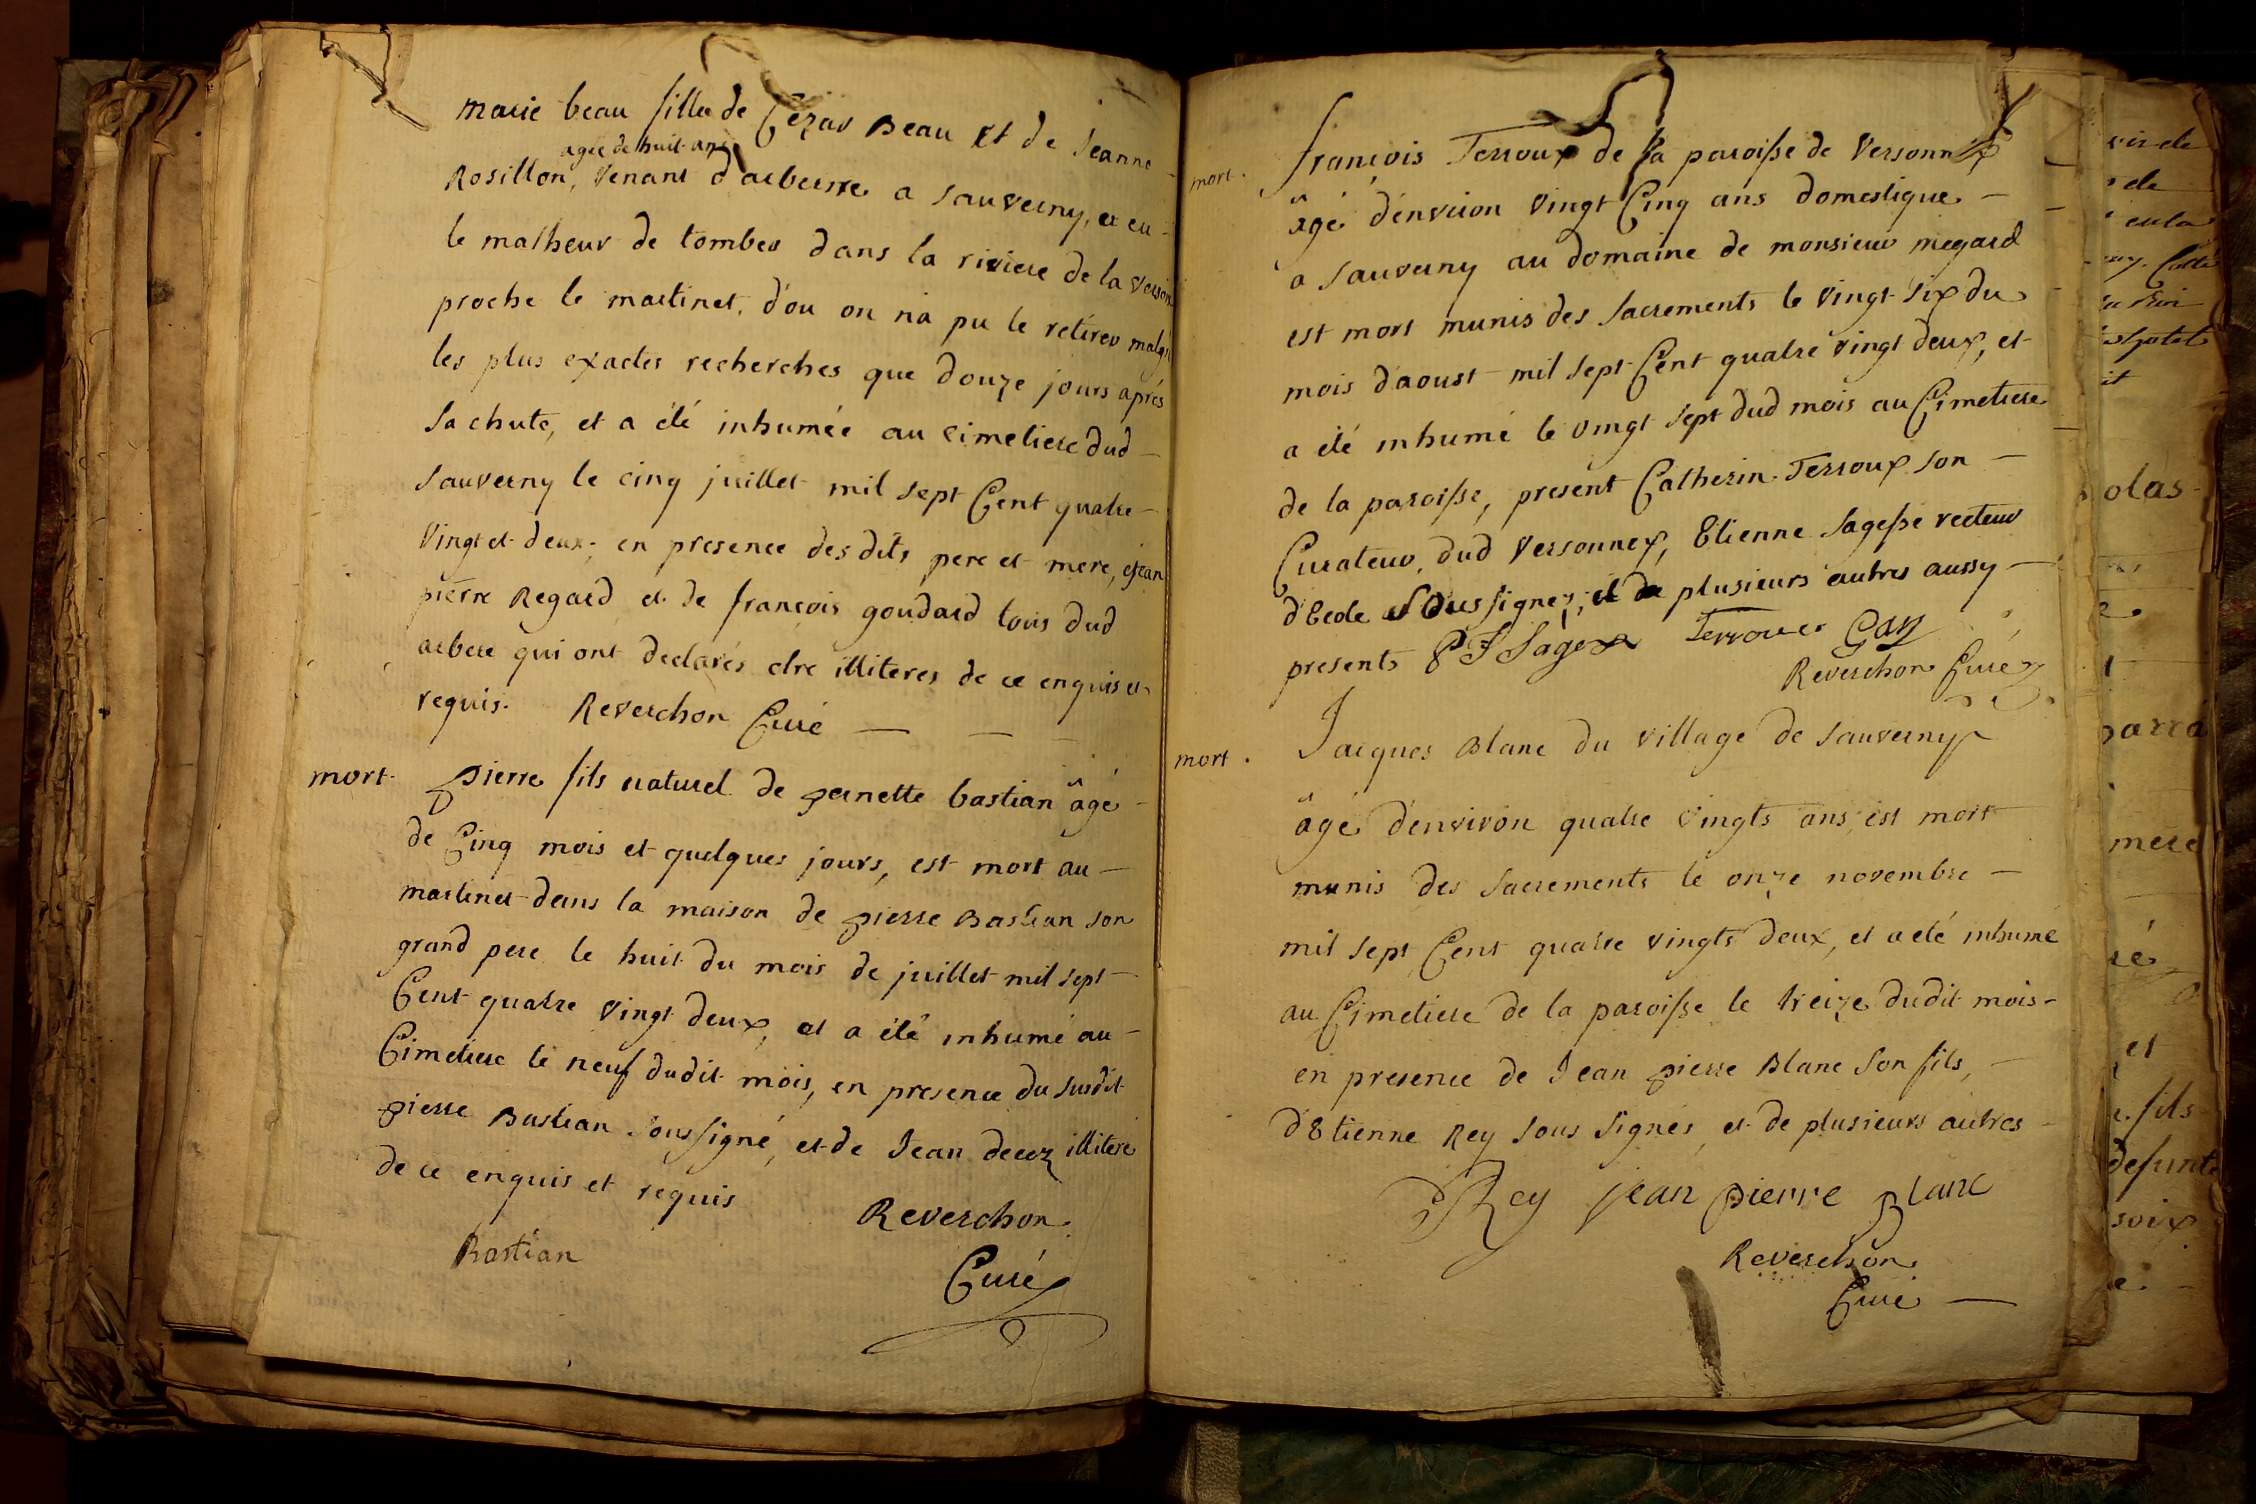 marie beau fille de Cezar Beau et de Jeanne
agée de huit ans
Rosillon, venant d'arberre a Sauverny, a eu
le malheur de tomber dans la riviere de la Versoix
proche le martinet, d'ou on n'a pu le retirer malgré
les plus exactes recherches que douze jours aprés
sa chute, et a été inhumée au cimetiere dud
Sauverny le cinq juillet mil sept Cent quatre
Vingt et deux, en presence des dits pere et mere, et jean
pierre Regard et de françois goudard tous dud
arbere qui ont declarés etre illiteres de ce enquis et
requis. Reverchon Curé
mort. pierre fils naturel de pernette bastian âgé
de Cinq mois et quelques jours, est mort au
martinet dans la maison de pierre Bastian son
grand pere le huit du mois de juillet mil sept
Cent quatre vingt deux, et a été inhumé au
Cimetiere le neuf dudit mois, en presence du susdit
pierre Bastian soussigné, et de Jean decez illiteré
de ce enquis et requis
Reverchon
Bastian
Curé
mort. françois Terroux de la paroisse de Versonnex
âgé d'environ vingt Cinq ans domestique
a Sauverny au domaine de monsieur megard
est mort munis des Sacrements le vingt six du
mois d'aoust mil sept Cent quatre vingt deux, et
a été inhumé le vingt sept dud mois au Cimetiere
de la paroisse, present Catherin Terroux son
Curateur, dud Versonnex, Etienne Sagesse recteur
d'Ecole Soussignez, et de plusieurs autres aussy
presents Terroux
Reverchon Curé
mort. Jacques Blanc du village de Sauverny
âgé d'environ quatre vingts ans, est mort
munis des Sacrements le onze novembre
mil sept Cent quatre vingts deux, et a été inhumé
au Cimetiere de la paroisse le treize dudit mois
en presence de Jean pierre Blanc son fils,
d'Etienne Rey sous signés, et de plusieurs autres
Rey jean pierre Blanc
Reverchon
Curé
olas
mere
et
fils
defunte